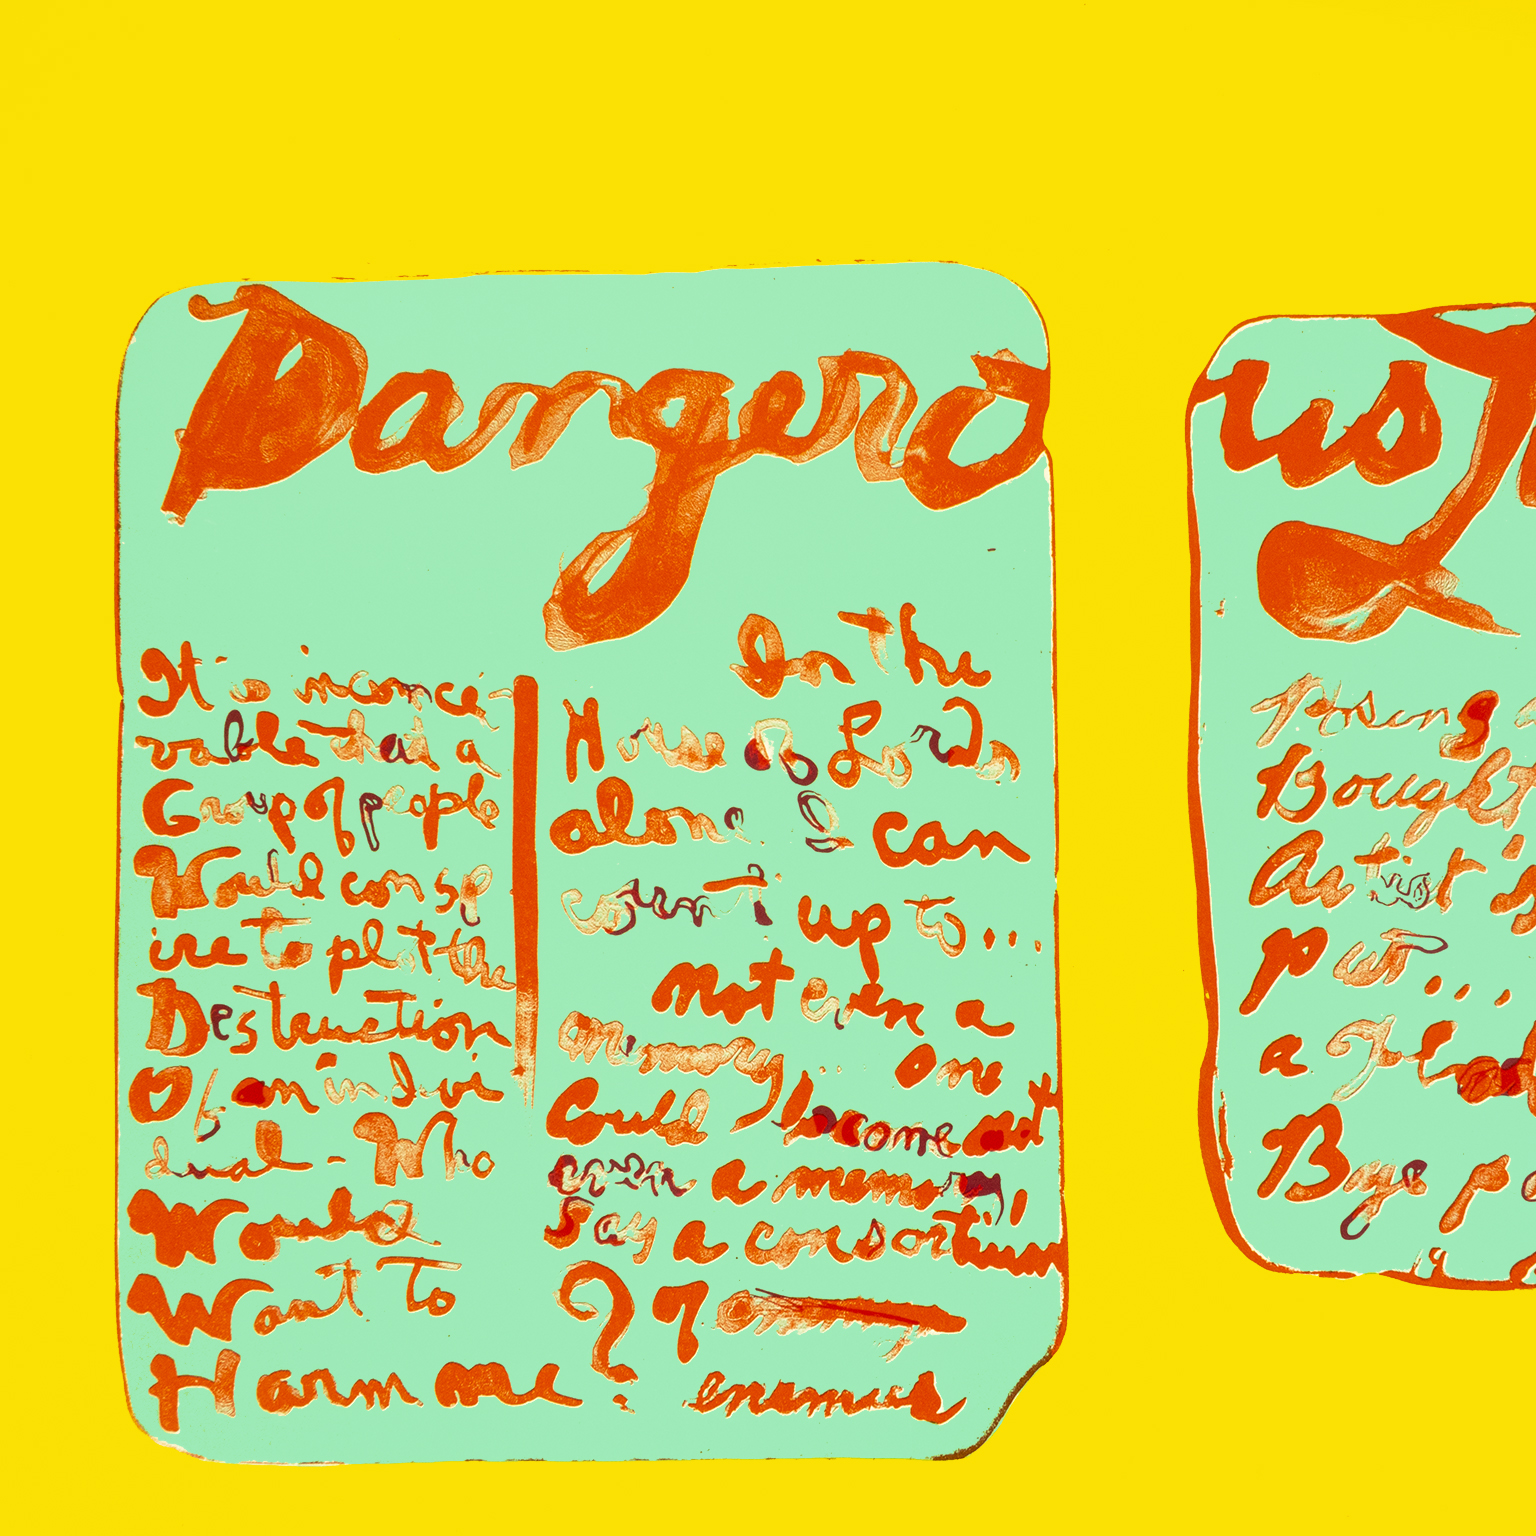 Dangero
It's inconcei-
vable that a
Group of people
Would consp
ire to plot the
Destruction
Of an indivi
dual - Who
Would
Want to
Harm me ?
In the
House of Lords
alone I can
count up to...
not even a
memory... one
Could become not
even a memory,
Say a consortium
of
enemies
us
Posing
Bought
Artist's
put...
a
Bye